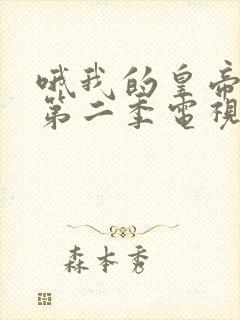 哦我的皇帝
第二季電視
森本秀